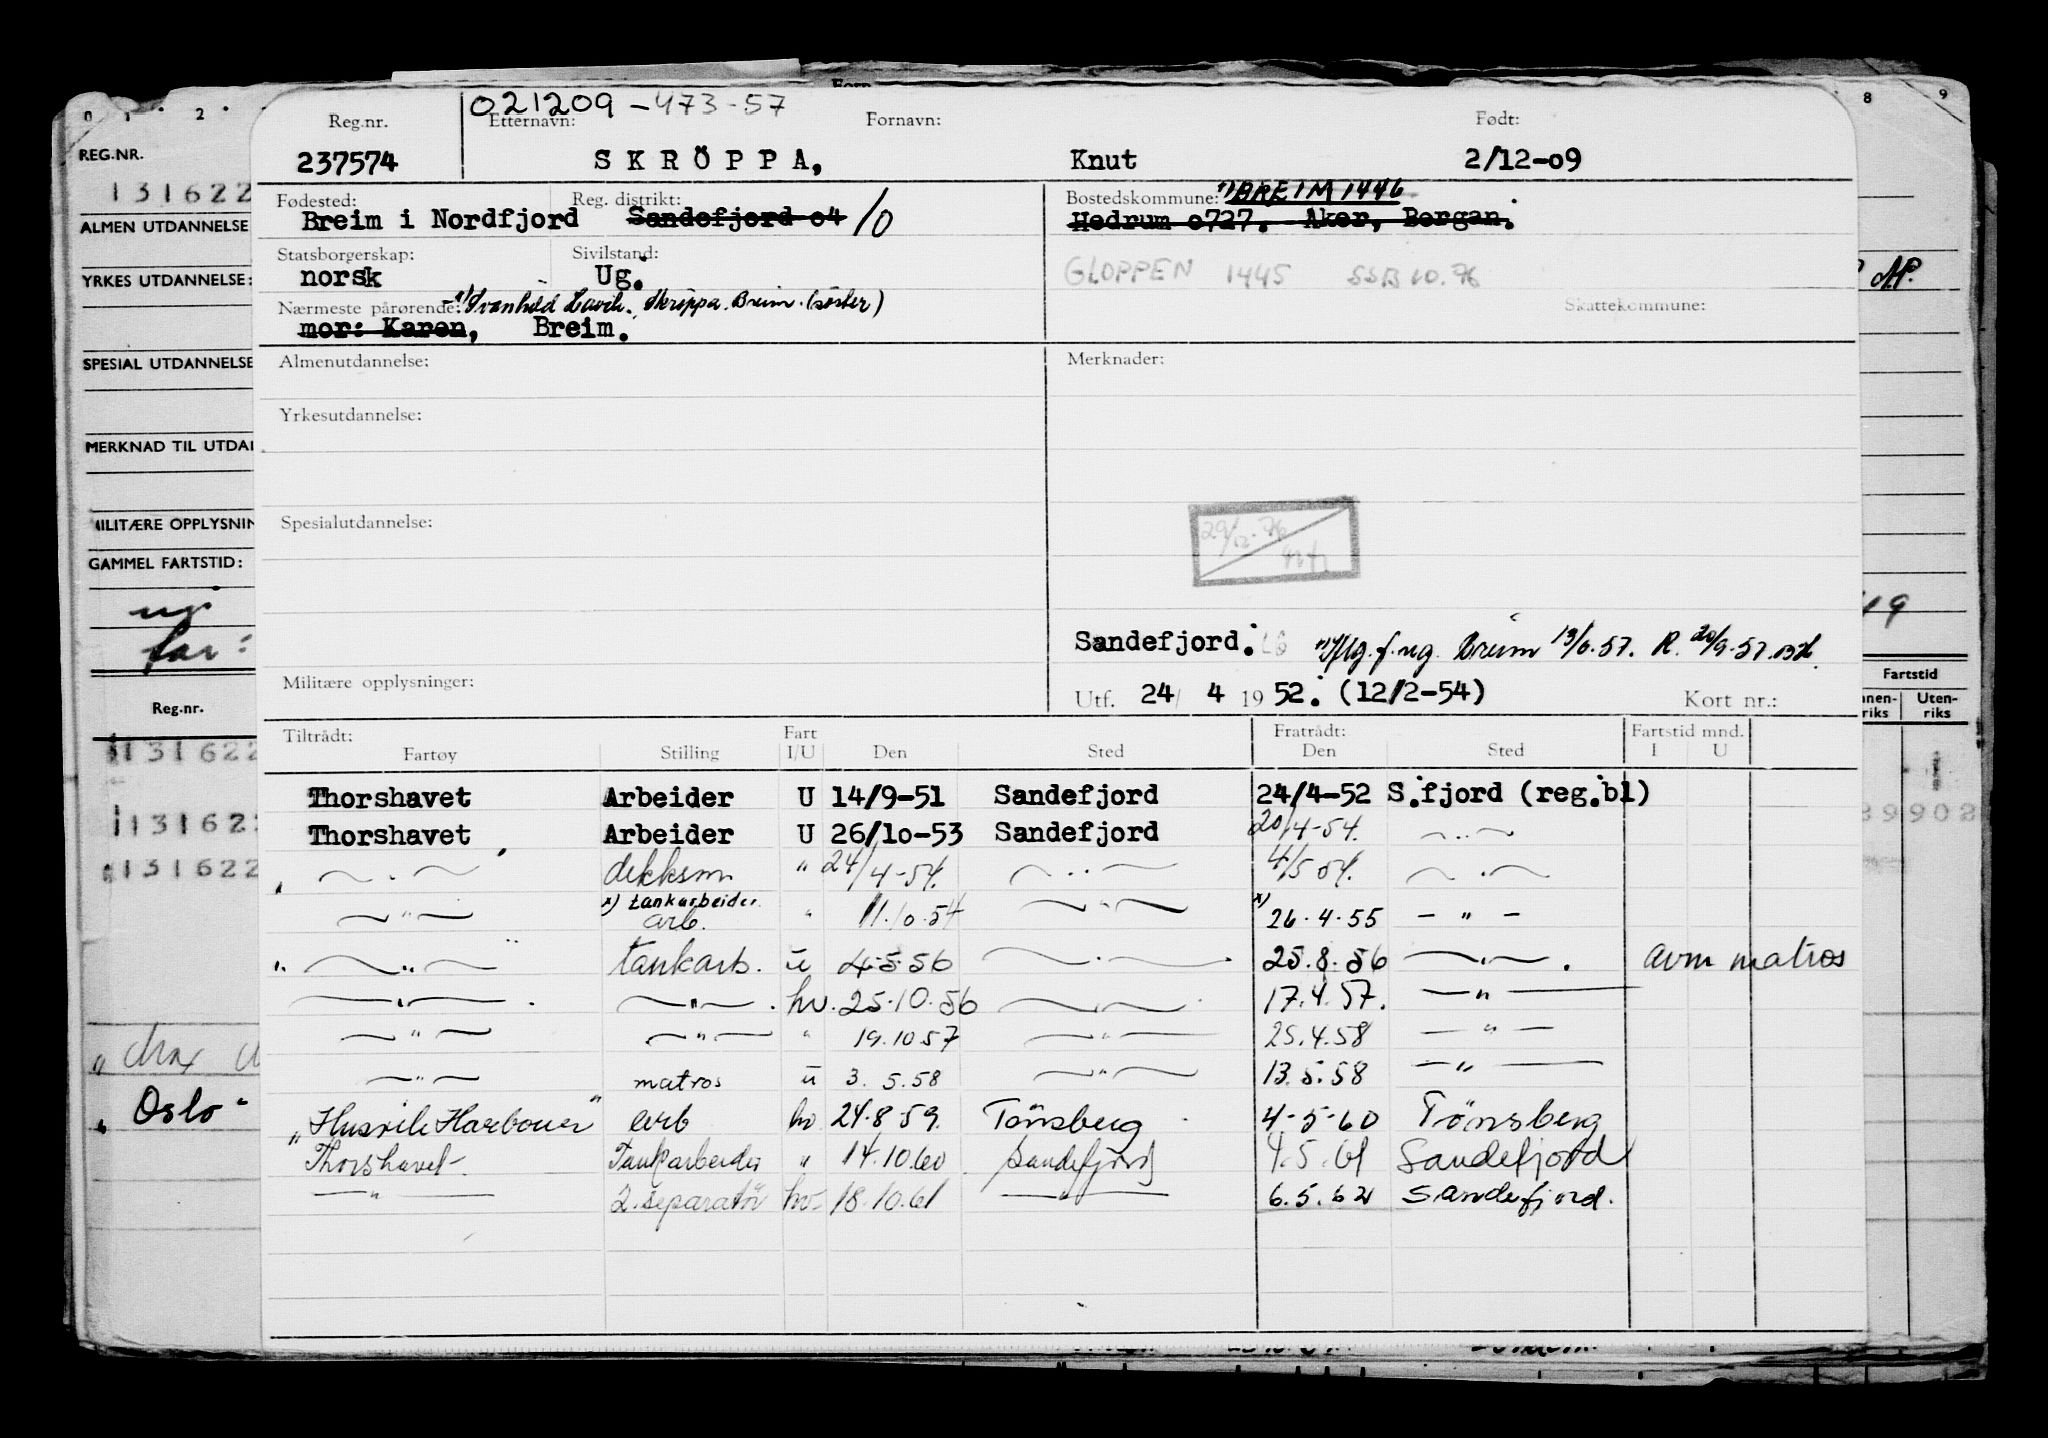 021209-473-57
Reg.nr. Etternavn: Fornavn: Født:
237574 SKRÖPPA, Knut 2/12-09
Fødested: Reg. distrikt: Bostedskommune: x) BREIM 1446
Breim i Nordfjord Sandefjord o4 /0 Hedrum o727. Aker, Bergan.
Statsborgerskap: Sivilstand:
norsk Ug. GLOPPEN 1445 SSB 10.76
Nærmeste pårørende: Skrøppa. Breim. (søster) Skattekommune:
mor: Karen, Breim.
Almenutdannelse: Merknader:
Yrkesutdannelse:
Spesialutdannelse:
Sandefjord. x) Flg.f.ug. Breim 13/6.57. R. 20/9-57.
Militære opplysninger:
Utf. 24/ 4 1952. (12/2-54) Kort nr.:
Tiltrådt: Fart Fratrådt: Fartstid mnd.
Fartøy Stilling I/U Den Sted Den Sted I U
Thorshavet Arbeider U 14/9-51 Sandefjord 24/4-52 S.fjord (reg.bl)
Thorshavet Arbeider U 26/1o-53 Sandefjord 20/4-54. — " —
— " — dekksm " 24/4-54. — " — 4/5 54. — " —
x) tankarbeider
— " — arb. " 11.10.54 — " — x) 26.4.55 — " —
— " — tankarb. u 4.5.56 — " — 25.8.56 — " — . avm matros
— " — — " — hv. 25.10.56 — " — 17.4.57. — " —
— " — — " — " 19.10 57 — " — 25.4.58 — " —
— " — matros u 3. 5.58 — " — 13.5.58 — " —
"Husvik Harbour" arb hv 24.8.59. Tönsberg 4-5-60 Tönsberg
Thorshavet Tankarbeider " 14.10.60 Sandefjord 4.5.61 Sandefjord
— " — 2. separatör hv- 18.10.61 — " — 6.5.62 Sandefjord.
0 1 2
REG.NR.
131622
ALMEN UTDANNELSE
YRKES UTDANNELSE:
SPESIAL UTDANNELSE
MERKNAD TIL UTDAN
MILITÆRE OPPLYSNIN
GAMMEL FARTSTID:
ug.
far:
Reg.nr.
131622
131622
131622
Oslo
8 9
Fartstid
nnen-riks Uten-riks
89902